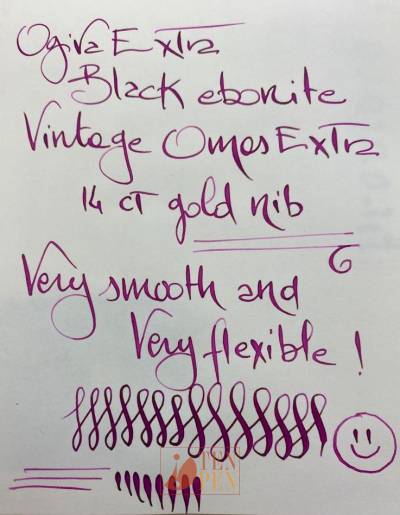 Ogiva Extra
Black ebonite
Vintage Omas Extra
14 cT gold nib
Very smooth and
Very flexible!
TEN
PEN